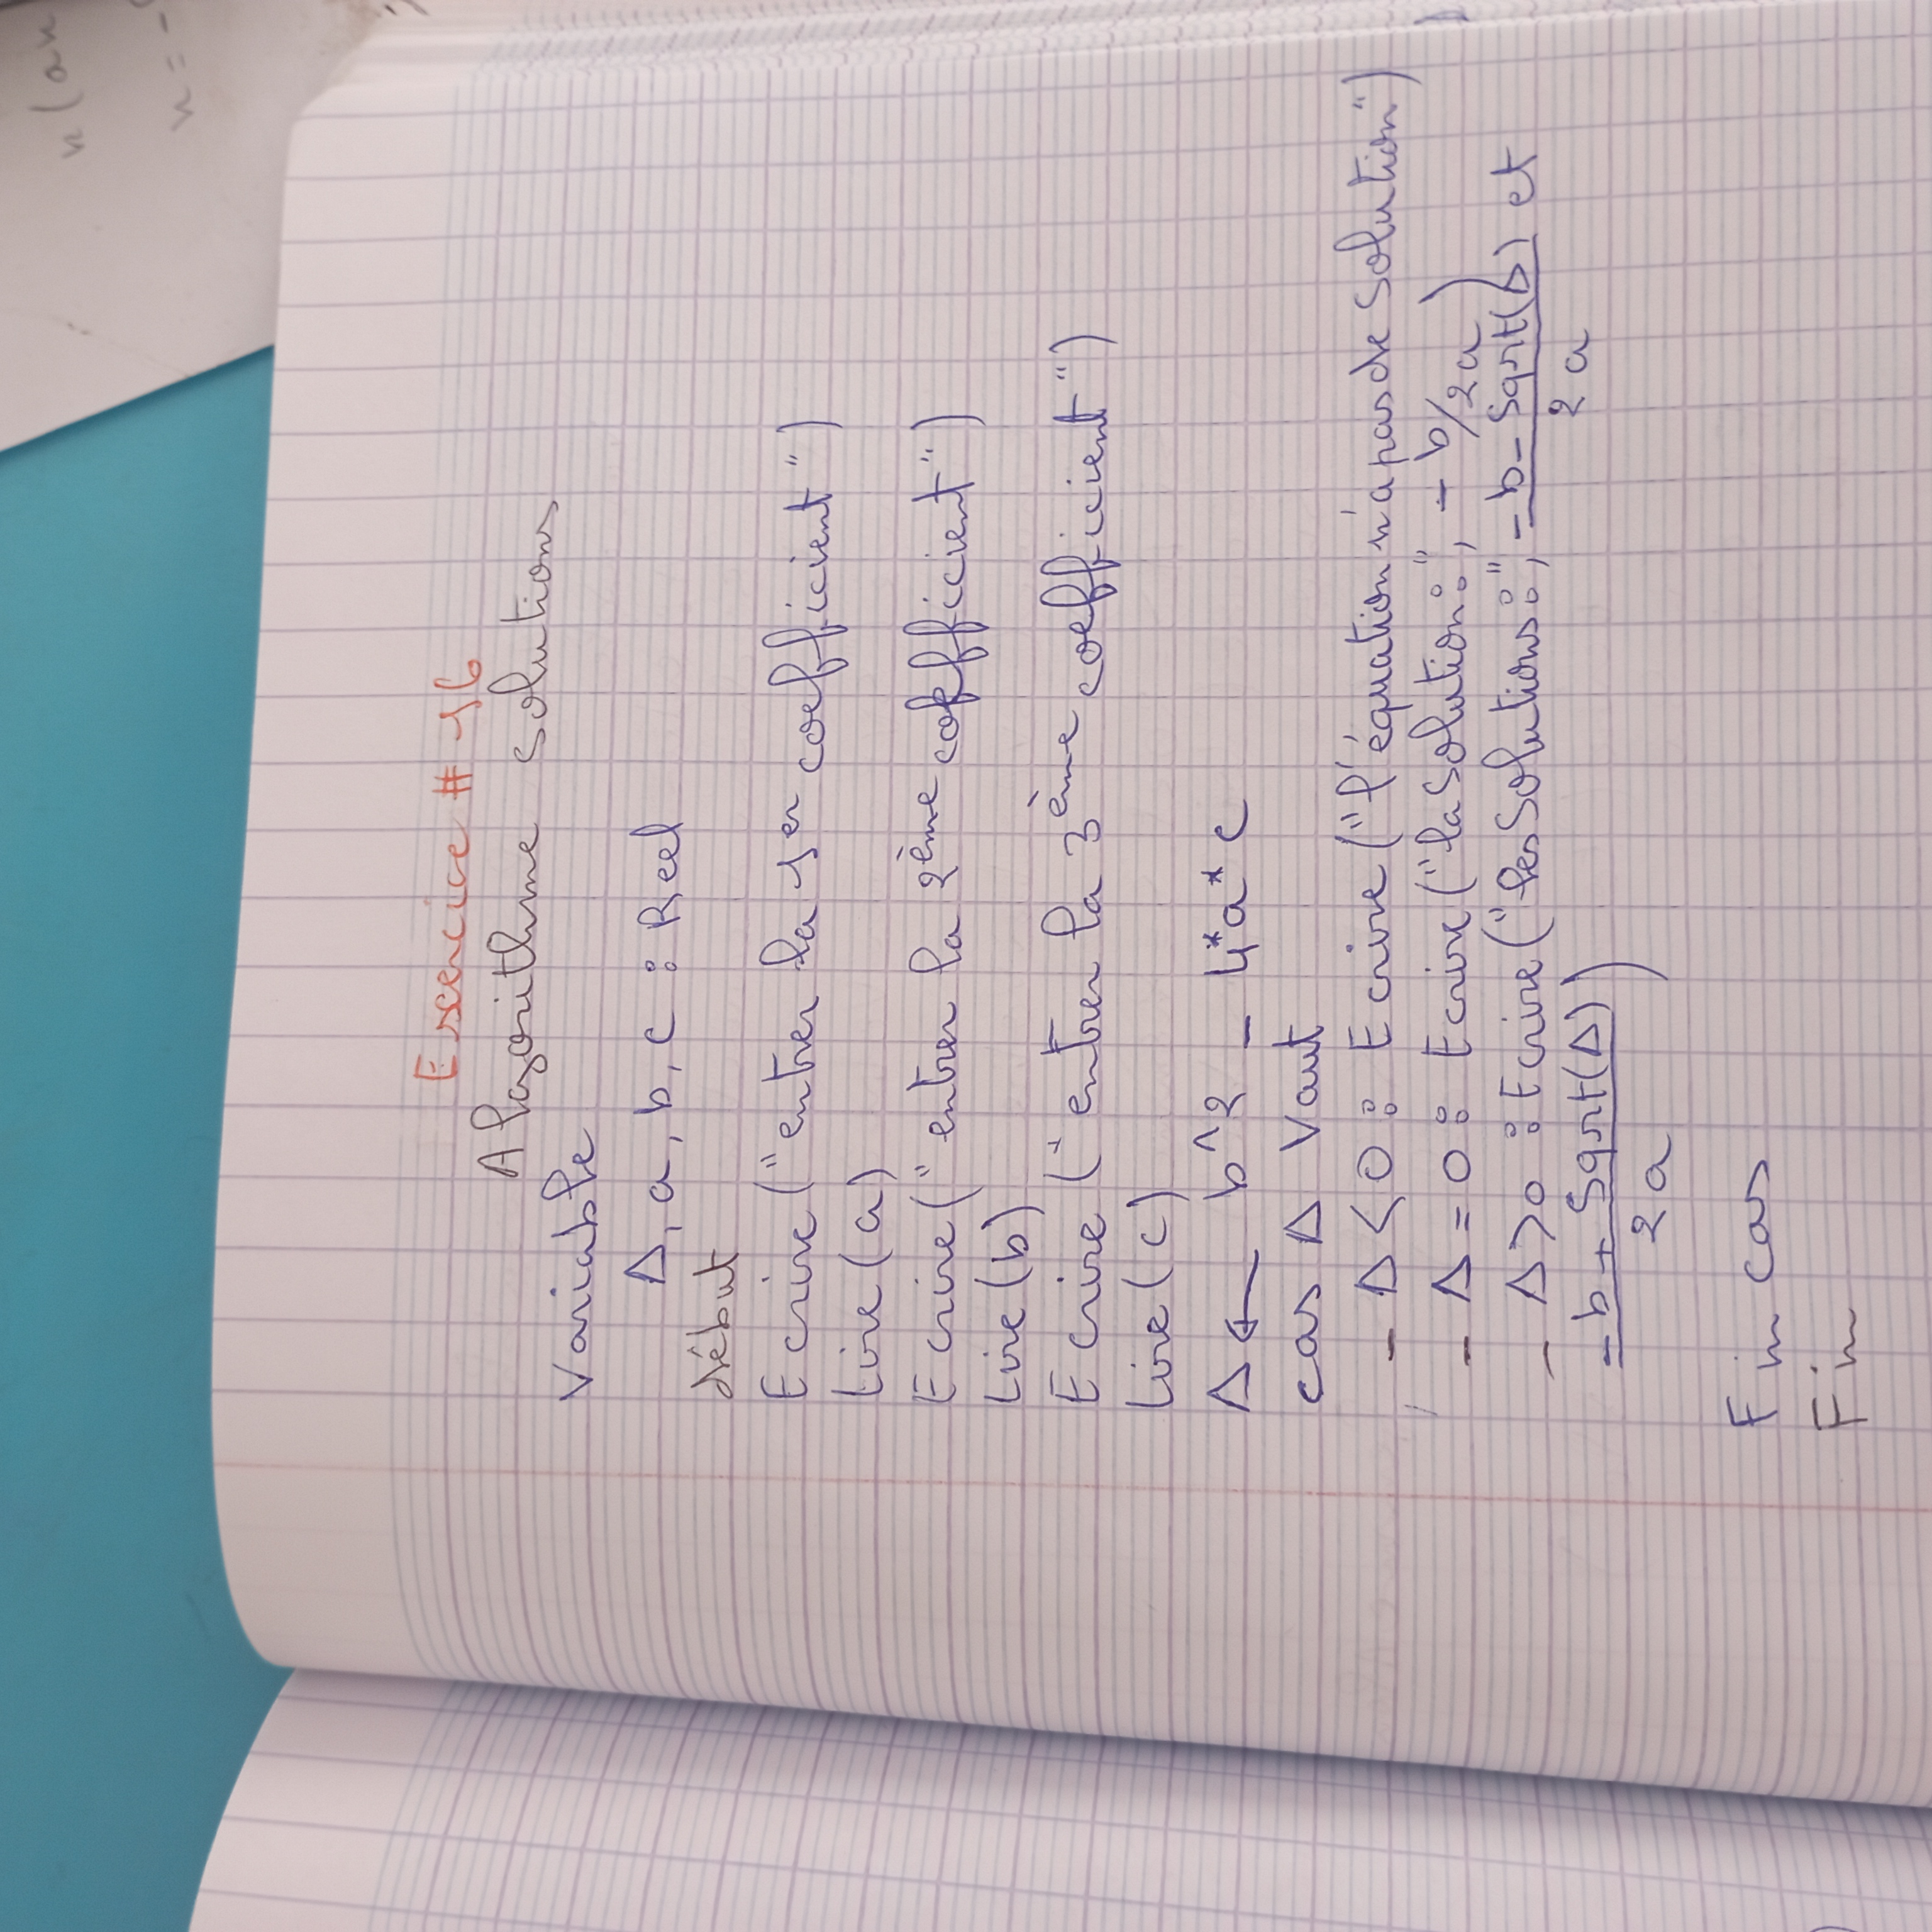 x(ax
x = -
Exercice # 16
Algorithme solutions
Variable
Δ, a, b, c : Reel
début
Ecrire ("entrer la 1er coefficient")
Lire (a)
Ecrire ("entrer la 2ème coefficient")
Lire (b)
Ecrire ("entrer la 3ème coefficient")
Lire (c)
Δ ← b^2 - 4*a*c
cas Δ Vaut
- Δ < 0 : Ecrire ("l'équation n'a pas de solution")
- Δ = 0 : Ecrire ("la solution:", - b/2a )
- Δ > 0 : Ecrire ("les solutions:", -b - Sqrt(Δ) et
2a
-b + Sqrt(Δ) )
2a
Fin cas
Fin